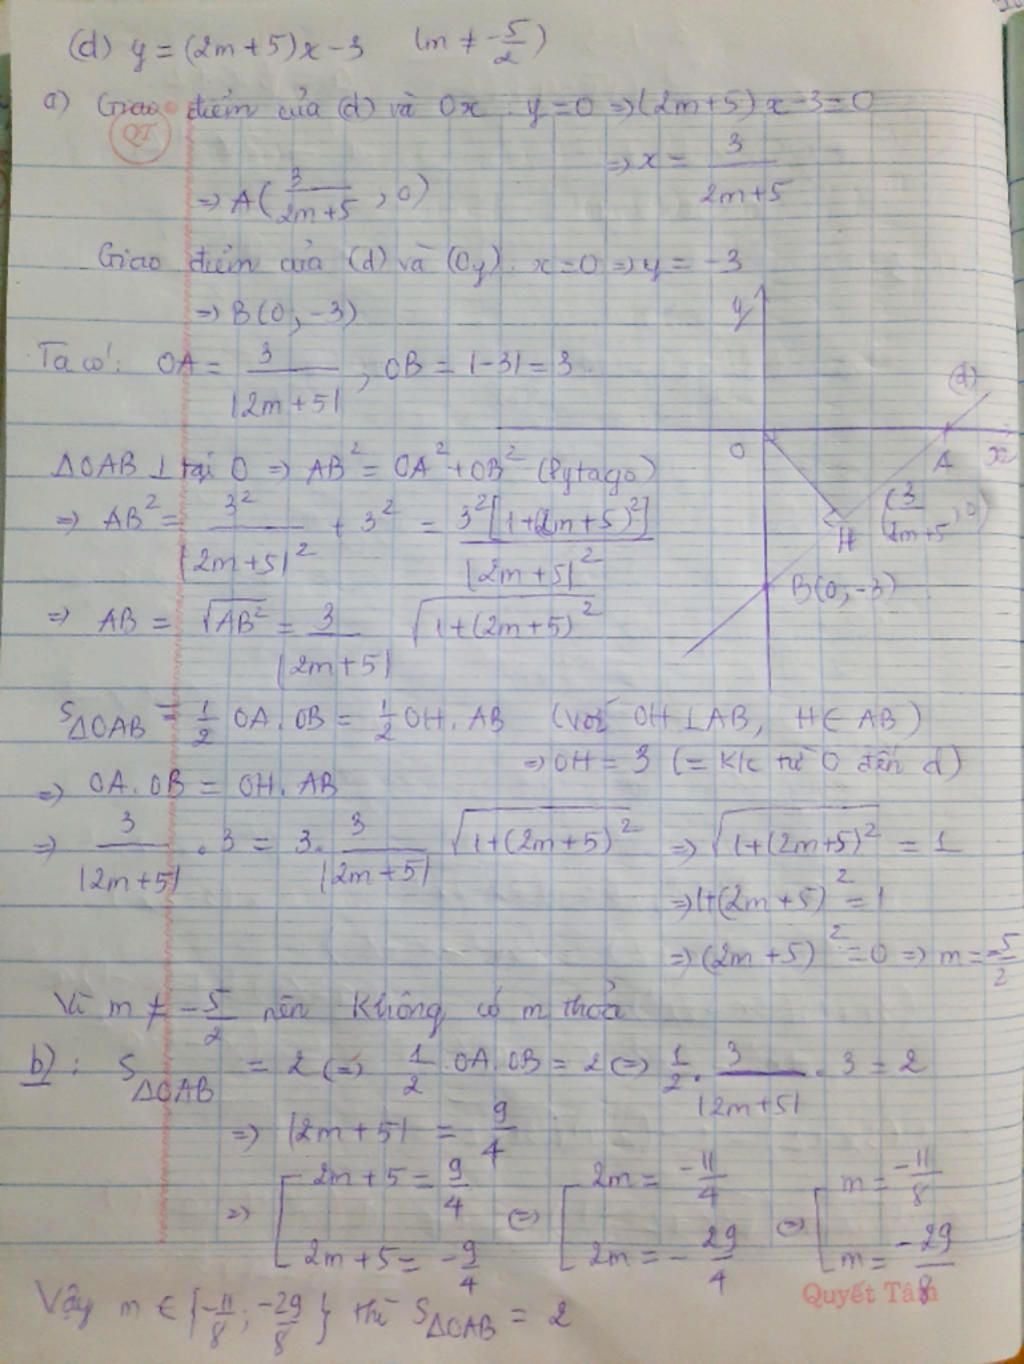 (d) y = (2m+5)x-3 (m ≠ -5/2)
a) Giao điểm của (d) và Ox . y=0 => (2m+5)x-3=0
QT
=> x = 3/(2m+5)
=> A(3/(2m+5), 0)
Giao điểm của (d) và (Oy). x=0 => y = -3
=> B(0, -3)
Ta có: OA = 3/|2m+5|, OB = |-3| = 3
ΔOAB ⊥ tại O => AB² = OA² + OB² (Pytago)
=> AB² = 3²/|2m+5|² + 3² = 3²[1+(2m+5)²]/|2m+5|²
=> AB = √AB² = 3/|2m+5| √(1+(2m+5)²)
y
(d)
O
A
x
(3/(2m+5), 0)
H
B(0,-3)
S ΔOAB = 1/2 OA.OB = 1/2 OH.AB (với OH⊥AB, H∈AB)
=> OH = 3 (= K/c từ O đến d)
=> OA.OB = OH.AB
=> 3/|2m+5| . 3 = 3. 3/|2m+5| √(1+(2m+5)²) => √(1+(2m+5)²) = 1
=> 1+(2m+5)² = 1
=> (2m+5)² = 0 => m = -5/2
Vì m ≠ -5/2 nên không có m thoả
b): S ΔOAB = 2 <=> 1/2 . OA.OB = 2 <=> 1/2 . 3/|2m+5| . 3 = 2
=> |2m+5| = 9/4
=> [ 2m+5 = 9/4 <=> [ 2m = -11/4 <=> [ m = -11/8
2m+5 = -9/4 2m = -29/4 m = -29/8
Quyết Tâm
Vậy m ∈ {-11/8; -29/8} thì S ΔOAB = 2